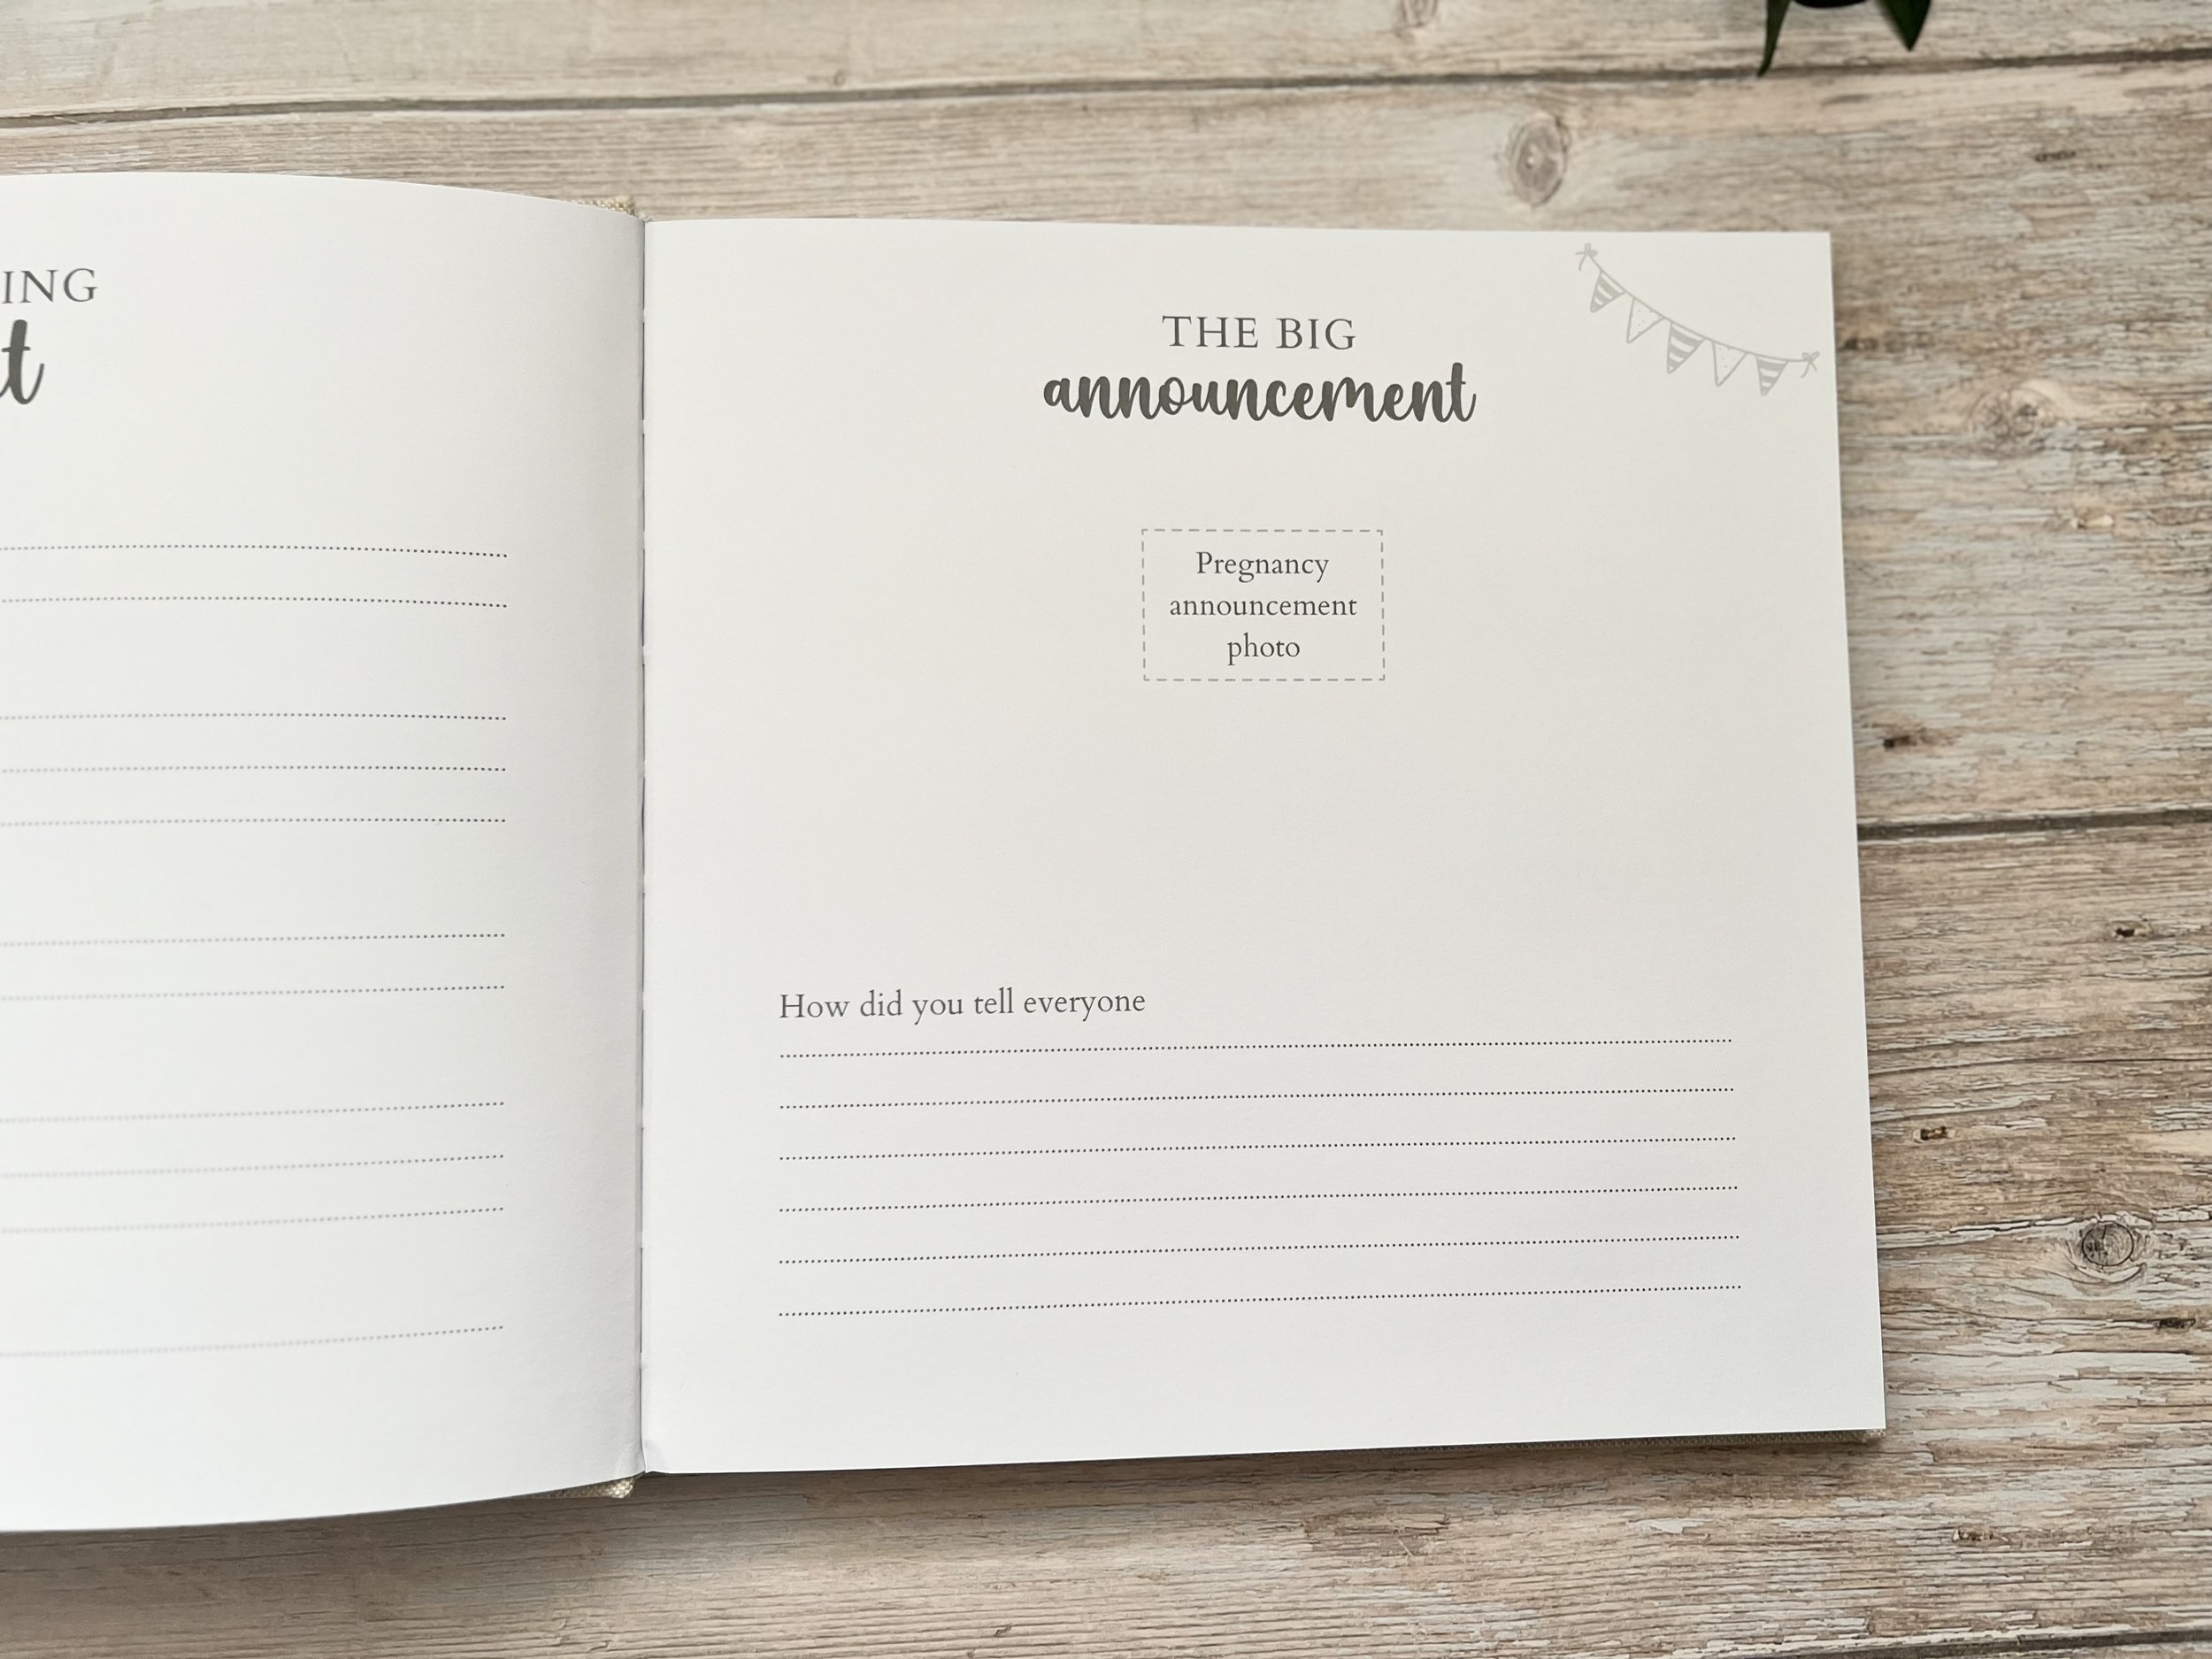 ING
t
THE BIG
announcement
Pregnancy
announcement
photo
How did you tell everyone